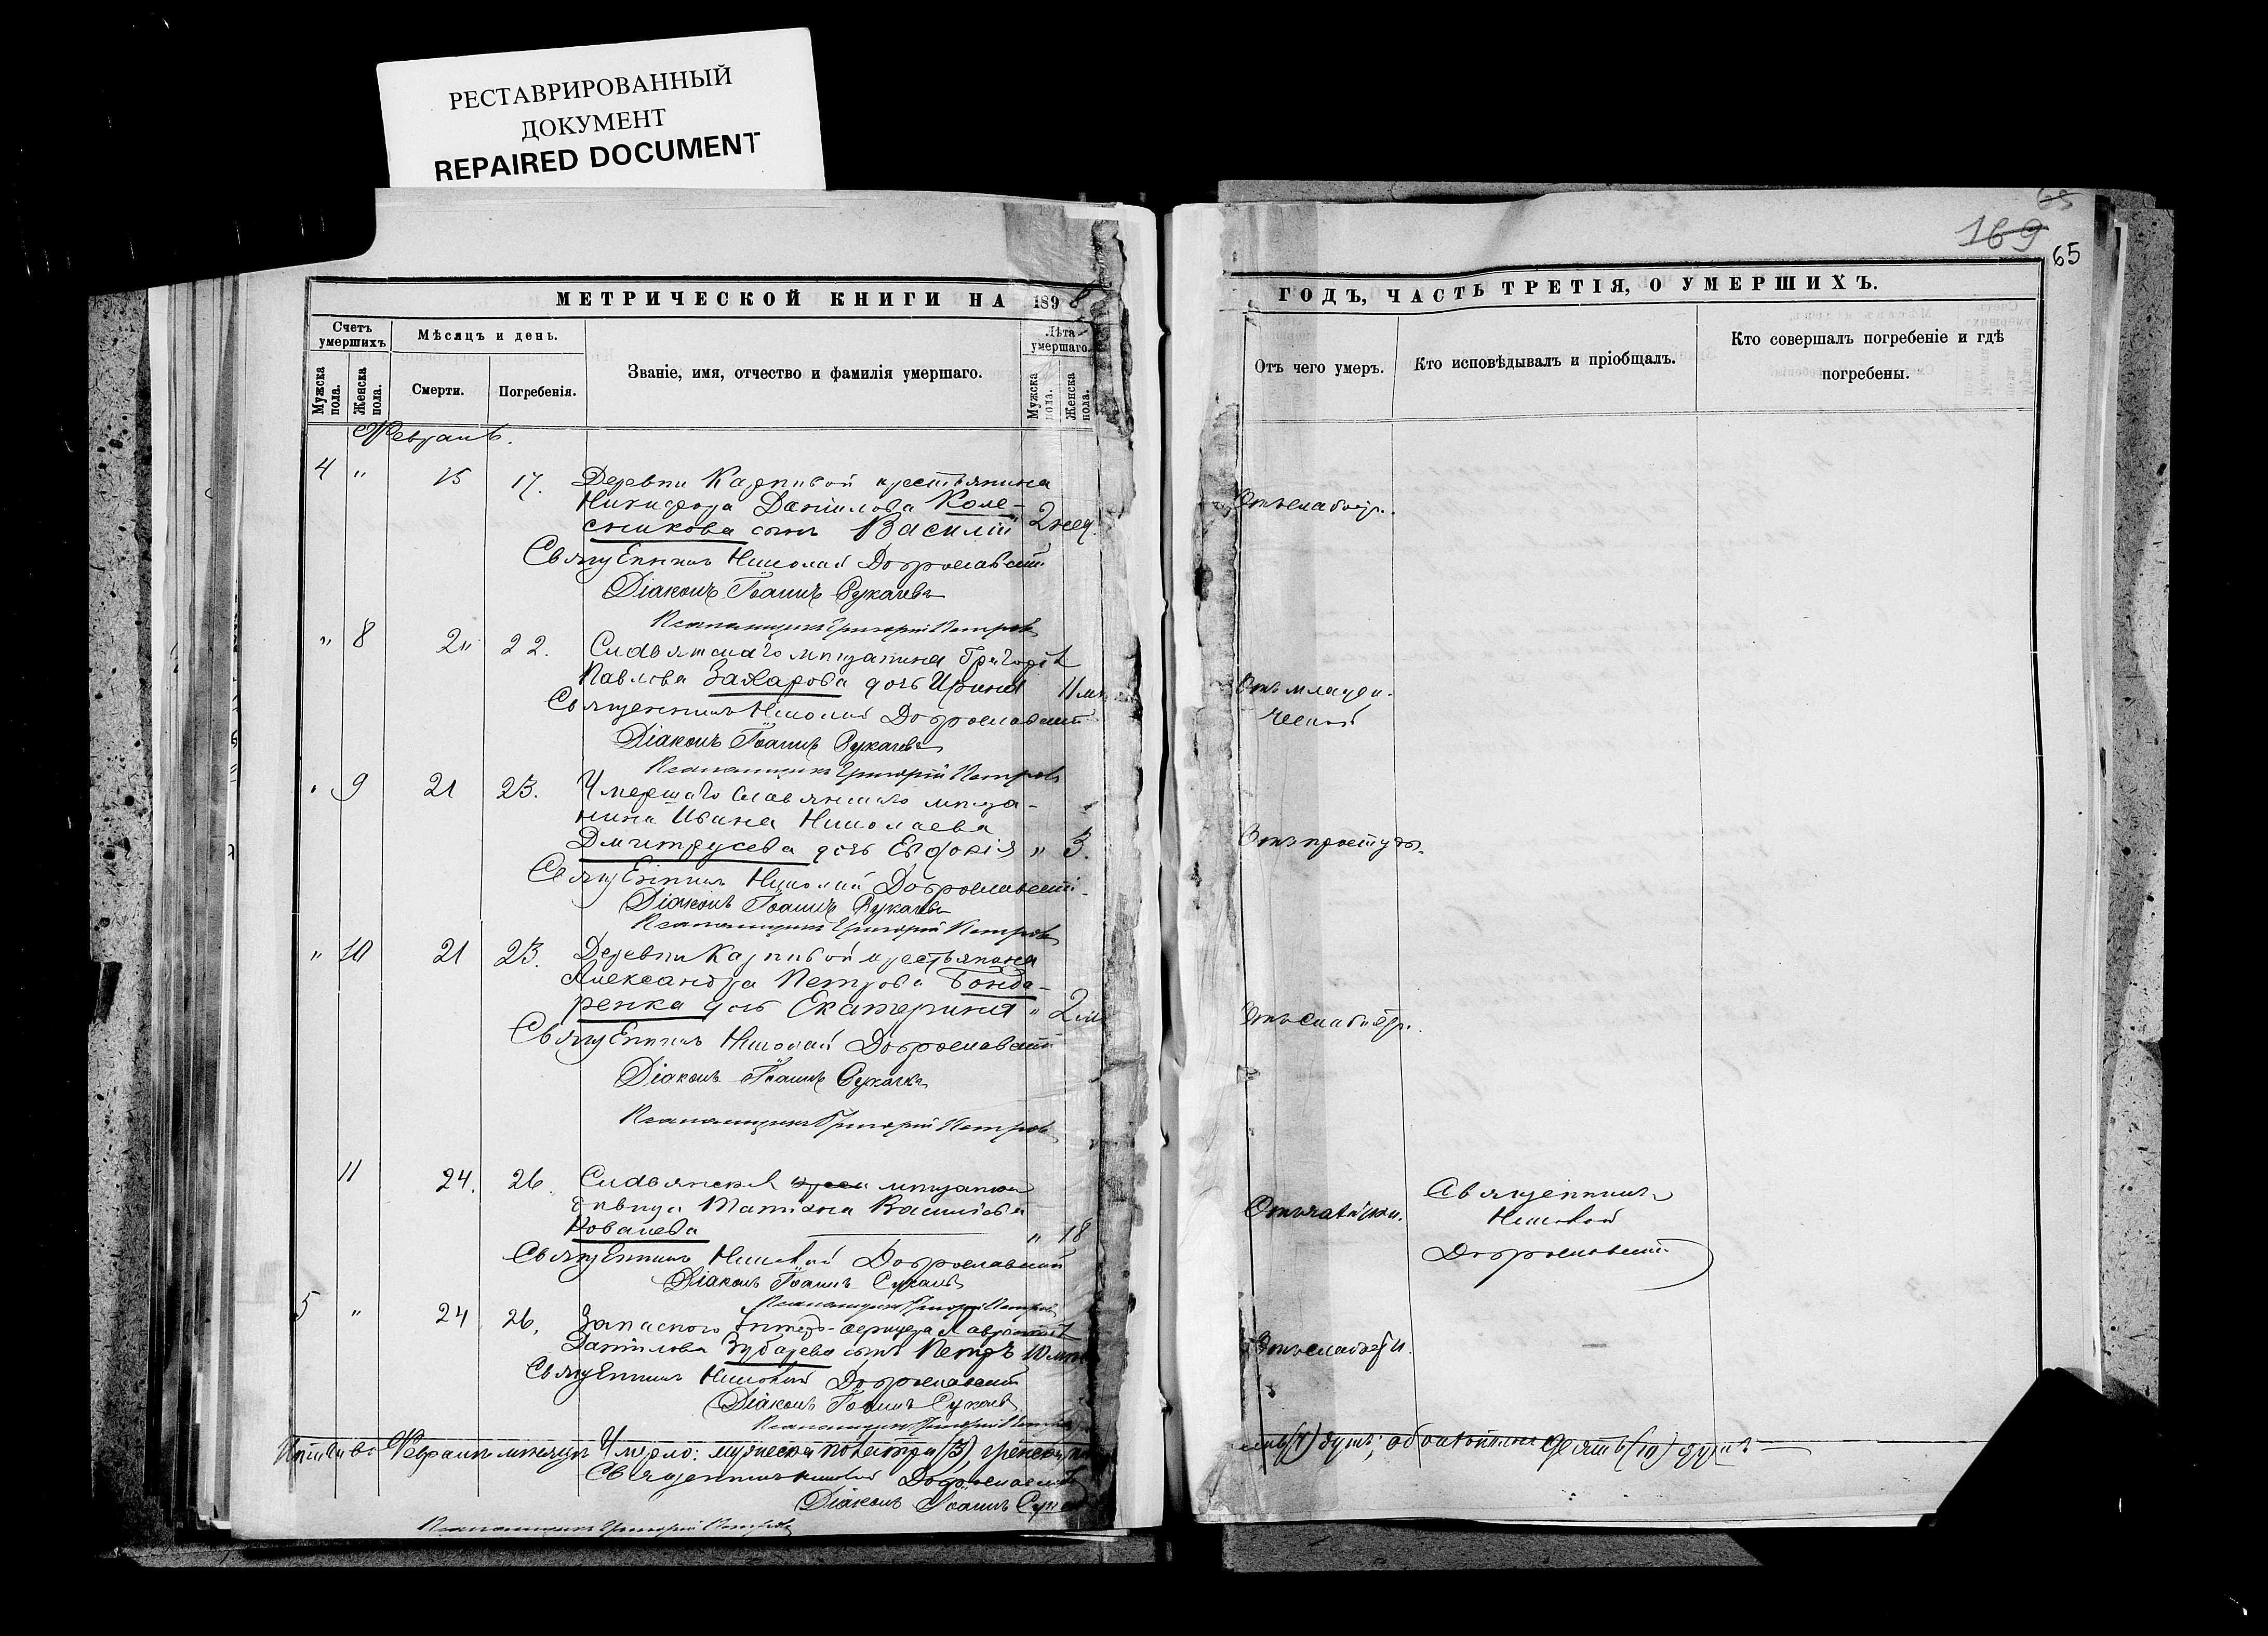 РЕСТАВРИРОВАННЫЙ
ДОКУМЕНТ
REPAIRED DOCUMENT
МЕТРИЧЕСКОЙ КНИГИ НА 1898
Счетъ умершихъ
Мѣсяцъ и день.
Званіе, имя, отчество и фамилія умершаго.
Лѣта умершаго.
Мужска пола.
Женска пола.
Смерти.
Погребенія.
Мужска пола.
Женска пола.
Февраль.
4 " 15 17. Деревни Карповой крестьянина
Никифора Данилова Коле-
сникова сынъ Василій 2 нед.
Священникъ Николай Доброславскій
Діаконъ Іоаннъ Рукачевъ
Псаломщикъ Григорій Петровъ
" 8 22. Славянскаго мѣщанина Григорія
Павлова Захарова дочь Ирина 11 м.
Священникъ Николай Доброславскій
Діаконъ Іоаннъ Рукачевъ
Псаломщикъ Григорій Петровъ
" 9 21 23. Умершаго Славянскаго мѣща-
нина Ивана Николаева
Дмитрусева дочь Евдокія " 3.
Священникъ Николай Доброславскій
Діаконъ Іоаннъ Рукачевъ
Псаломщикъ Григорій Петровъ
" 10 21 23. Деревни Карповой крестьянина
Александра Петрова Бонда-
ренка дочь Екатерина " 2 м.
Священникъ Николай Доброславскій
Діаконъ Іоаннъ Рукачевъ
Псаломщикъ Григорій Петровъ
11 24. 26. Славянская мѣщанская
дѣвица Васильева
Ковалева " 18
Священникъ Николай Доброславскій
Діаконъ Іоаннъ
Псаломщикъ Григорій Петровъ
5 " 24 26. Запаснаго унтеръ-офицера Лаврентія
Данилова Зубарева сынъ Петръ 10 мѣс
Священникъ Николай Доброславскій
Діаконъ Іоаннъ
Псаломщикъ Григорій Петровъ
Итого въ Февралѣ мѣсяцѣ Умерло: мужеска пола три (3), женска
Священникъ Николай Доброславскій
Діаконъ Іоаннъ
Псаломщикъ Григорій Петровъ
169
65
ГОДЪ, ЧАСТЬ ТРЕТІЯ, О УМЕРШИХЪ.
Отъ чего умеръ.
Кто исповѣдывалъ и пріобщалъ.
Кто совершалъ погребеніе и гдѣ погребены.
Отъ слабости.
Отъ младен-
ческой
Отъ простуды.
Отъ слабости.
Отъ чахотки.
Священникъ
Николай
Доброславскій
Отъ слабости.
душъ; обоего пола десять (10) душъ